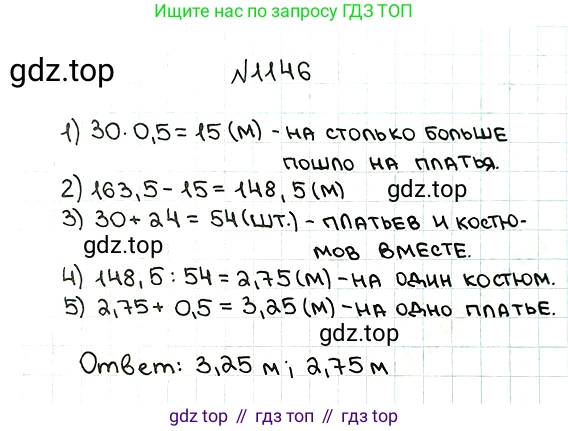 Ищите нас по запросу ГДЗ ТОП
gdz.top
№1146
1) 30·0,5=15(м) - на столько больше
пошло на платья.
2) 163,5-15=148,5(м)
gdz.top
3) 30+24=54(шт.) - платьев и костю-
gdz.top
мов вместе.
4) 148,5:54=2,75(м)-на один костюм.
5) 2,75+0,5=3,25(м)-на одно платье.
gdz.top
Ответ: 3,25 м; 2,75 м
gdz top // гдз топ // gdz.top